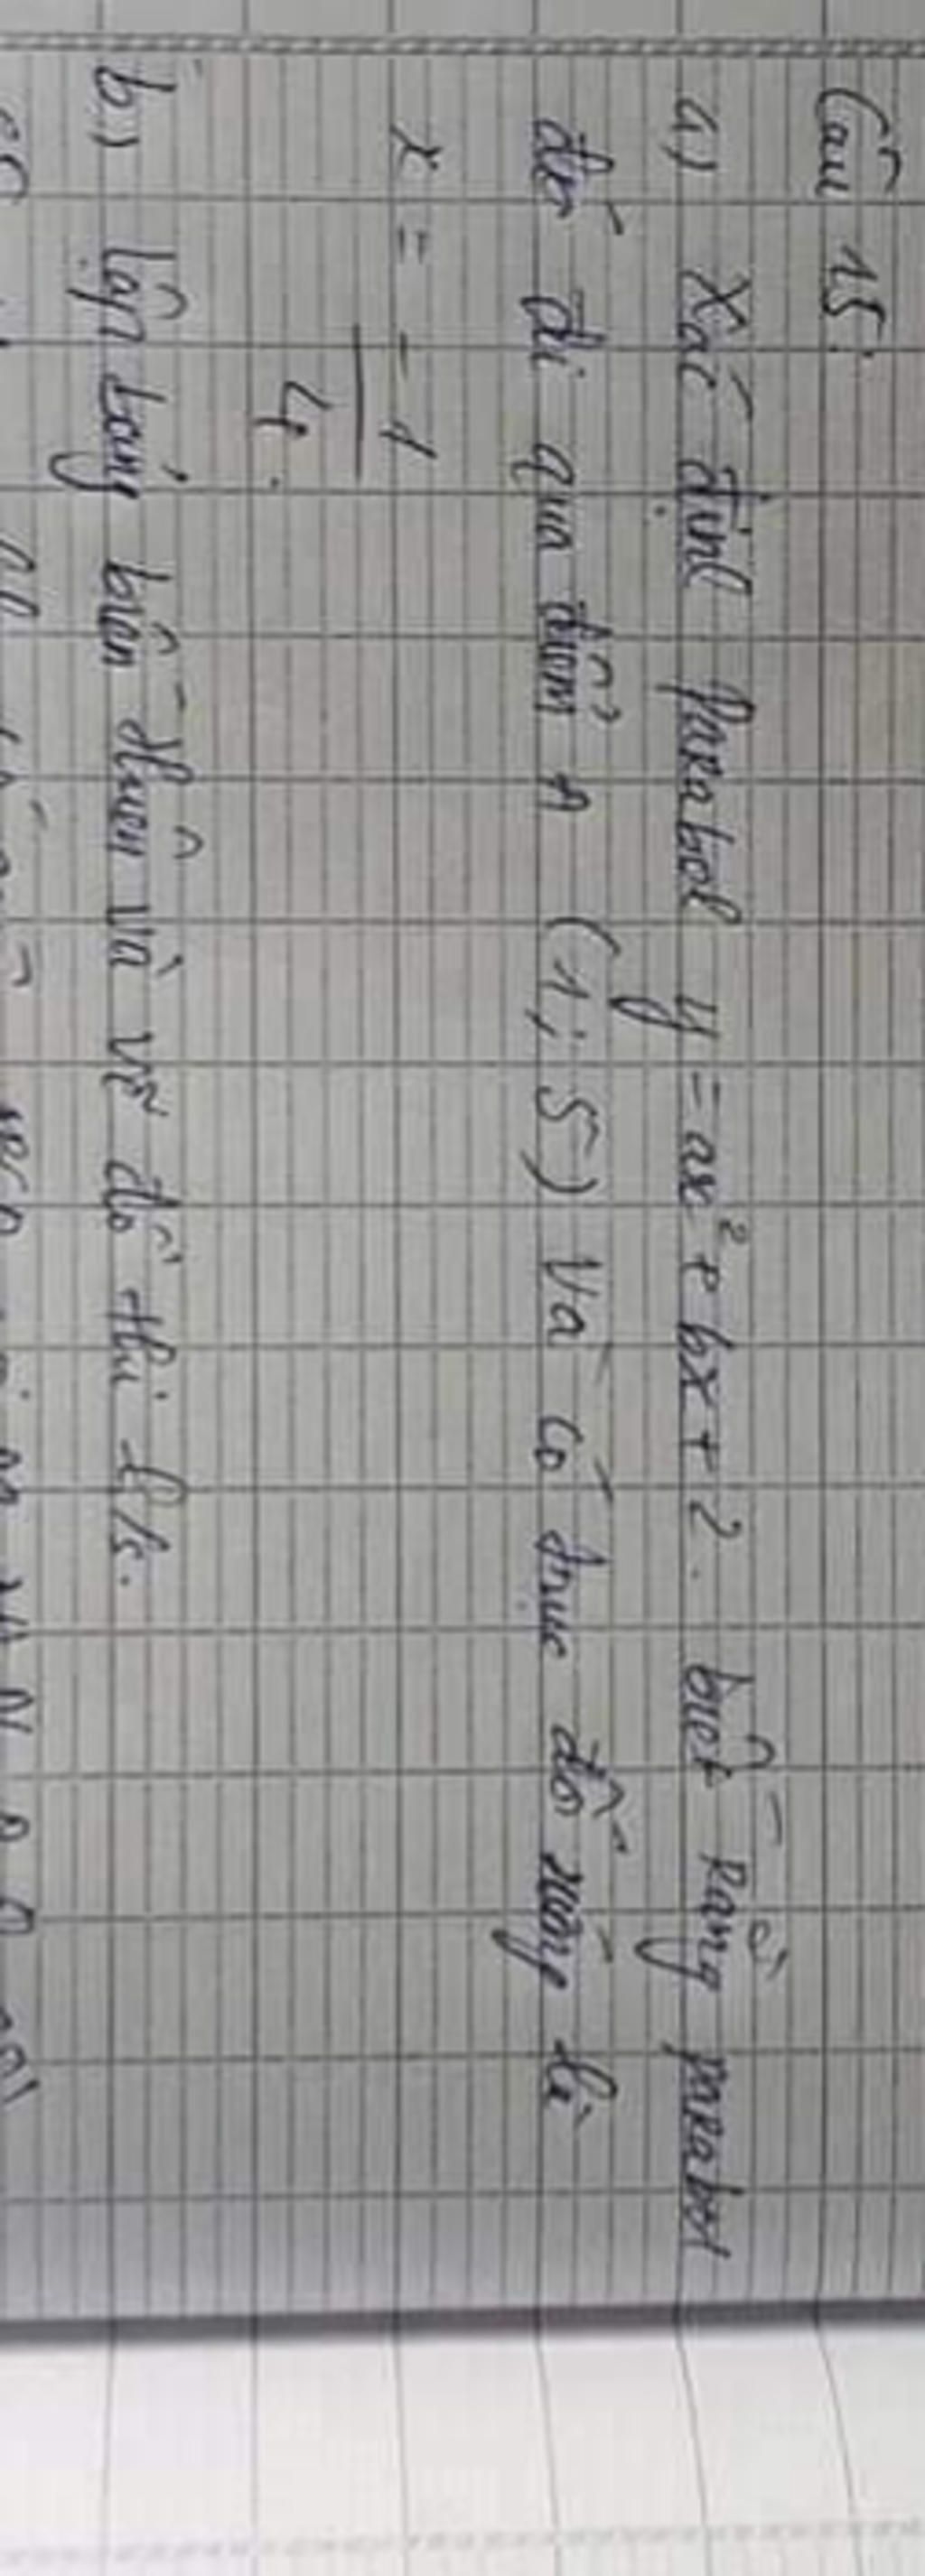 Câu 15:
a) Xác định parabol y = ax² + bx + 2. biết rằng parabol
đó đi qua điểm A (1; 5) Và có trục đối xứng là
x = -1/4.
b) lập bảng biến thiên và vẽ đồ thị h/s.